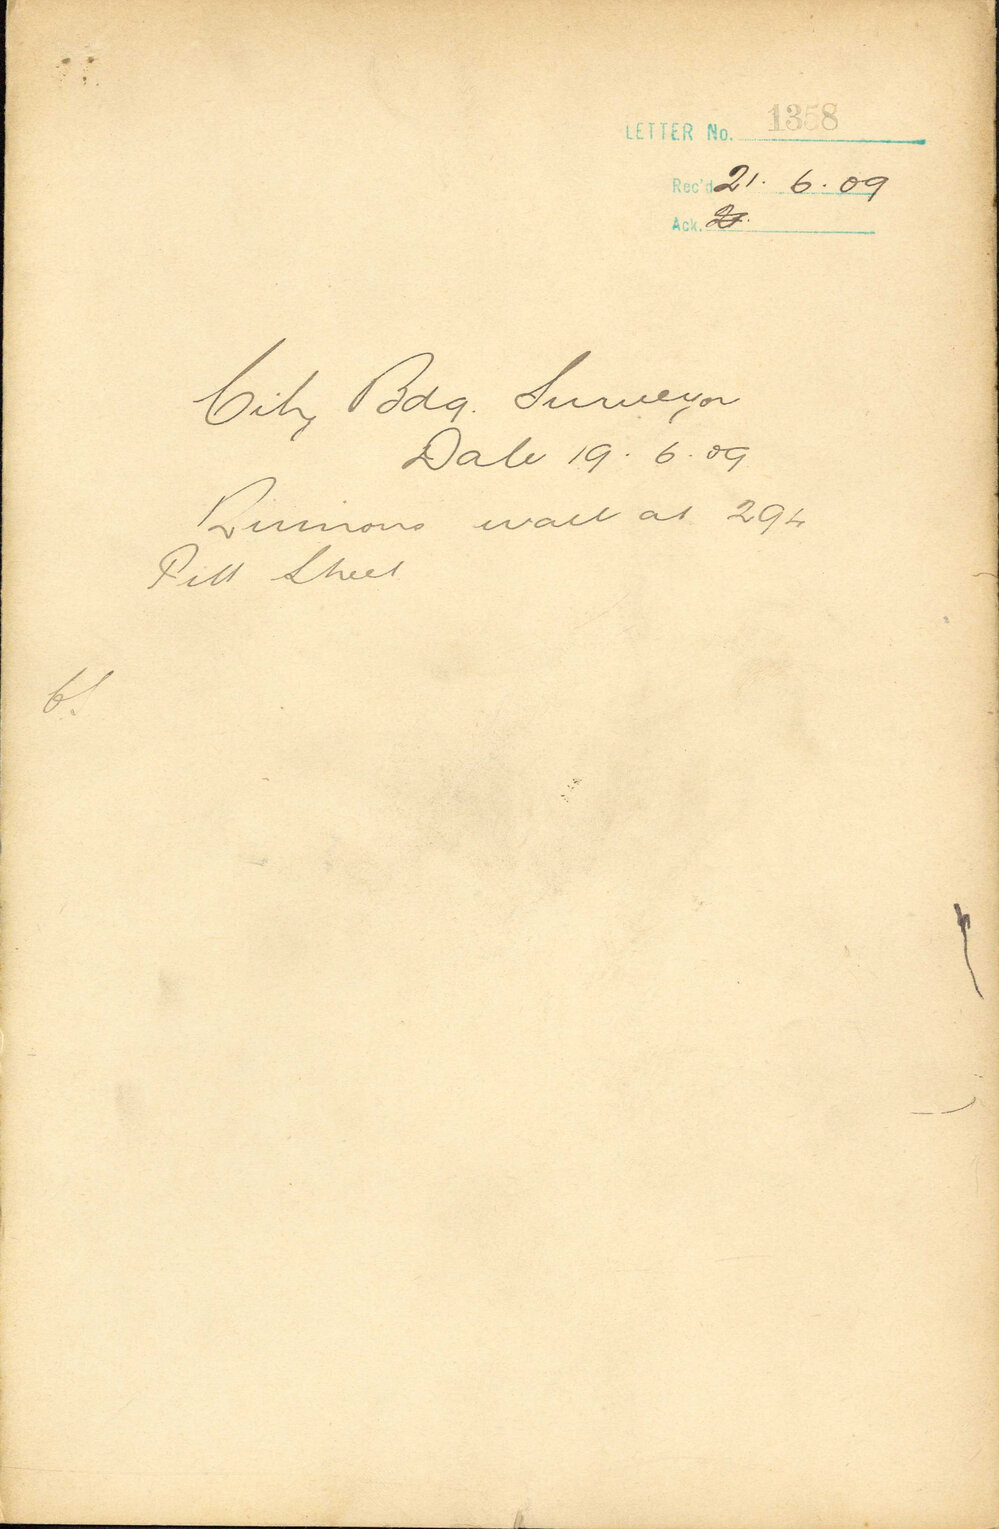 LETTER No. 1358
Rec'd 21. 6. 09
Ack.
City Bdg. Surveyor
Date 19. 6. 09
wall at 294
Pitt Street